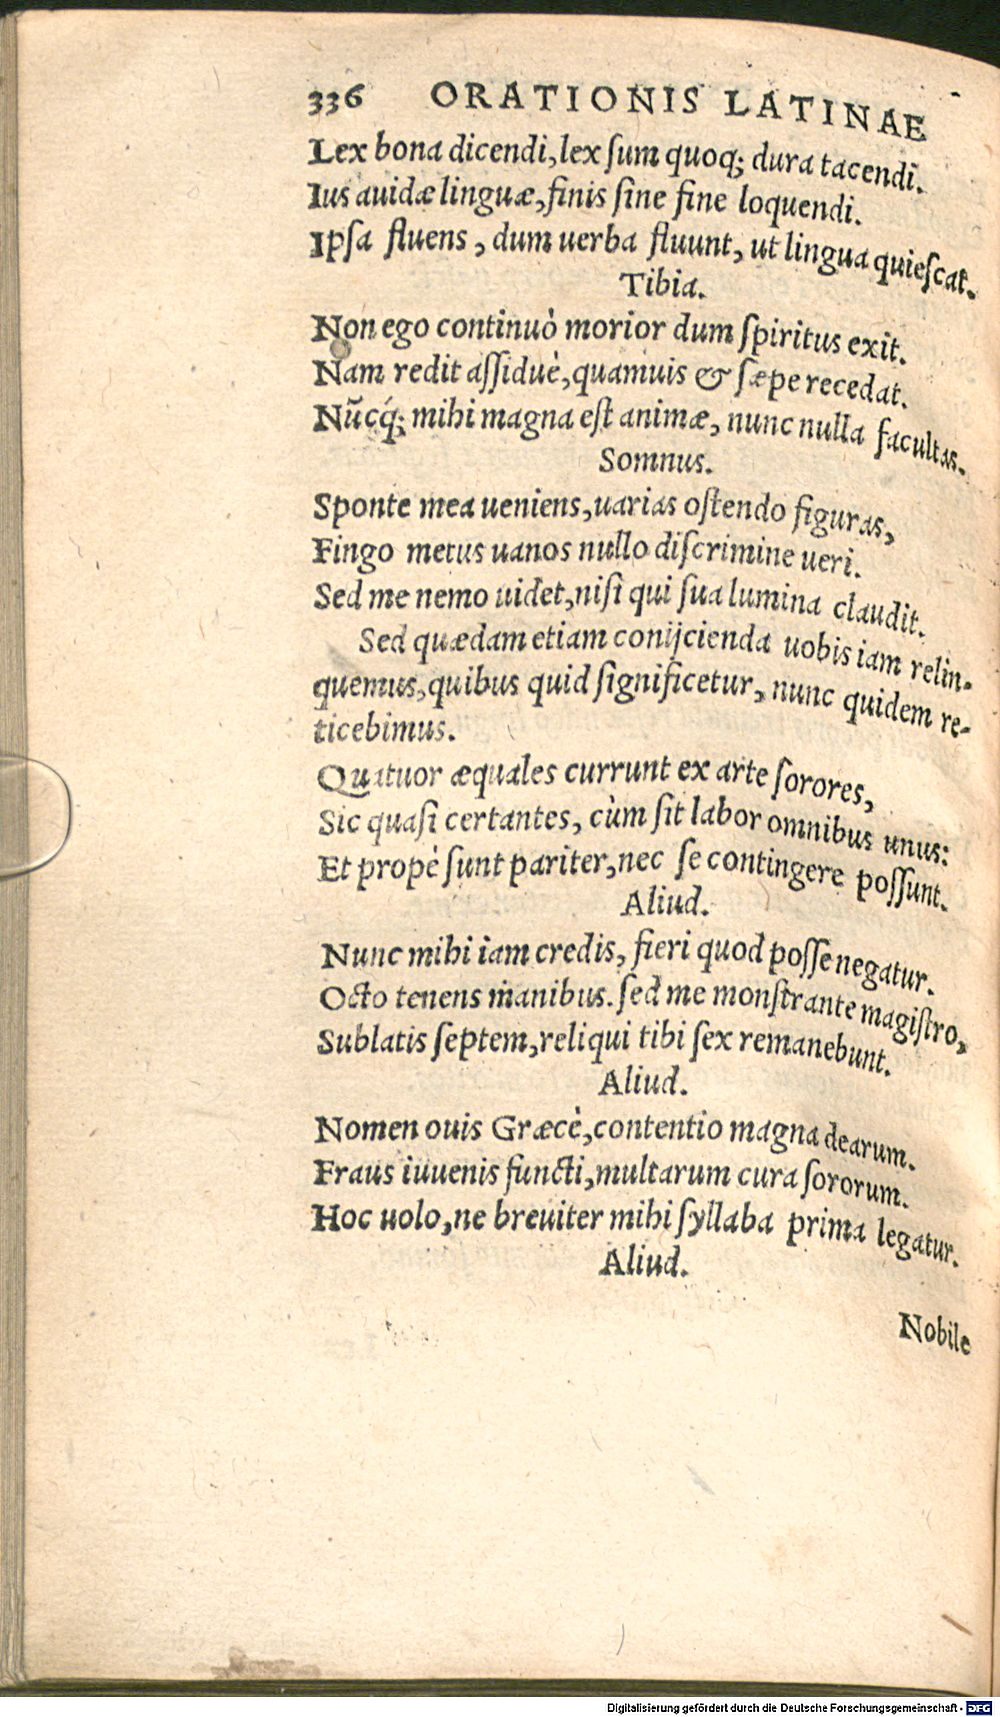 336 ORATIONIS LATINAE
Lex bona dicendi, lex ſum quoq; dura tacendi.
Ius auidæ linguæ, finis ſine fine loquendi.
Ipſa fluens, dum uerba fluunt, ut lingua quieſcat.
Tibia.
Non ego continuò morior dum ſpiritus exit.
Nam redit aſſiduè, quamuis & ſæpe recedat.
Nũcq́; mihi magna eſt animæ, nunc nulla facultas.
Somnus.
Sponte mea ueniens, uarias oſtendo figuras,
Fingo metus uanos nullo diſcrimine ueri.
Sed me nemo uidet, niſi qui ſua lumina claudit.
Sed quædam etiam conijcienda uobis iam relin-
quemus, quibus quid ſignificetur, nunc quidem re-
ticebimus.
Quatuor æquales currunt ex arte ſorores,
Sic quaſi certantes, cùm ſit labor omnibus unus:
Et propè ſunt pariter, nec ſe contingere poſſunt.
Aliud.
Nunc mihi iam credis, fieri quod poſſe negatur.
Octo tenens manibus. ſed me monſtrante magiſtro,
Sublatis ſeptem, reliqui tibi ſex remanebunt.
Aliud.
Nomen ouis Græcè, contentio magna dearum.
Fraus iuuenis functi, multarum cura ſororum.
Hoc uolo, ne breuiter mihi ſyllaba prima legatur.
Aliud.
Nobile
Digitalisierung gefördert durch die Deutsche Forschungsgemeinschaft - DFG